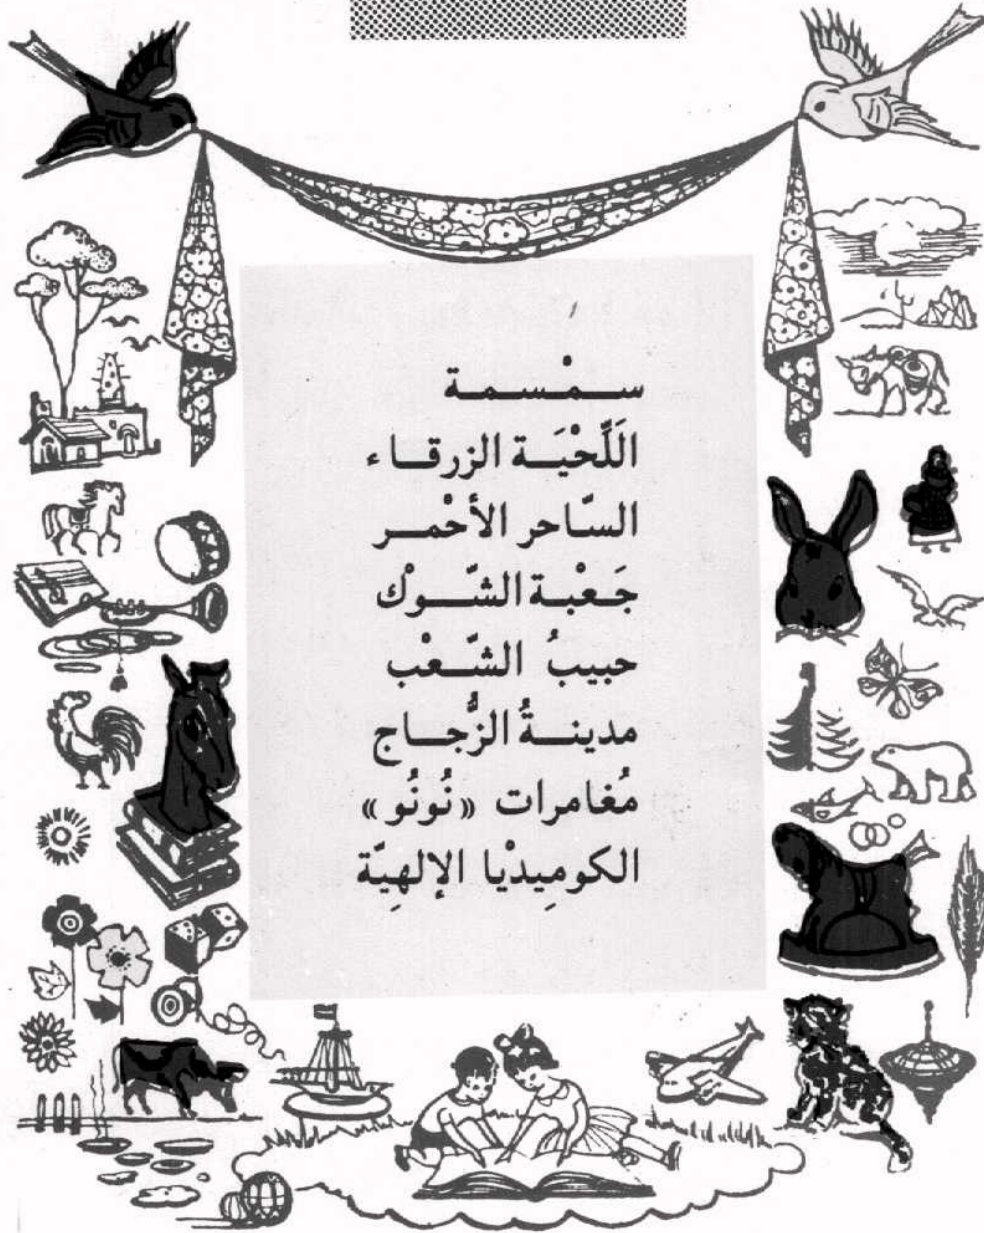 سمْسمة
اللِّحْيَة الزرقاء
السّاحر الأحْمر
جَعْبة الشّوْك
حبيبُ الشّعْب
مدينةُ الزُّجاج
مُغامرات «نُونُو»
الكومِيدْيا الإلهِيّة